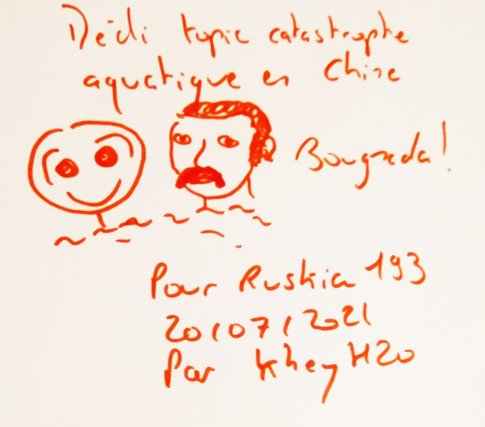 Dédi topic catastrophe
aquatique en Chine
Bougnada!
Pour Ruskia 193
20/07/2021
Par Khey H2O